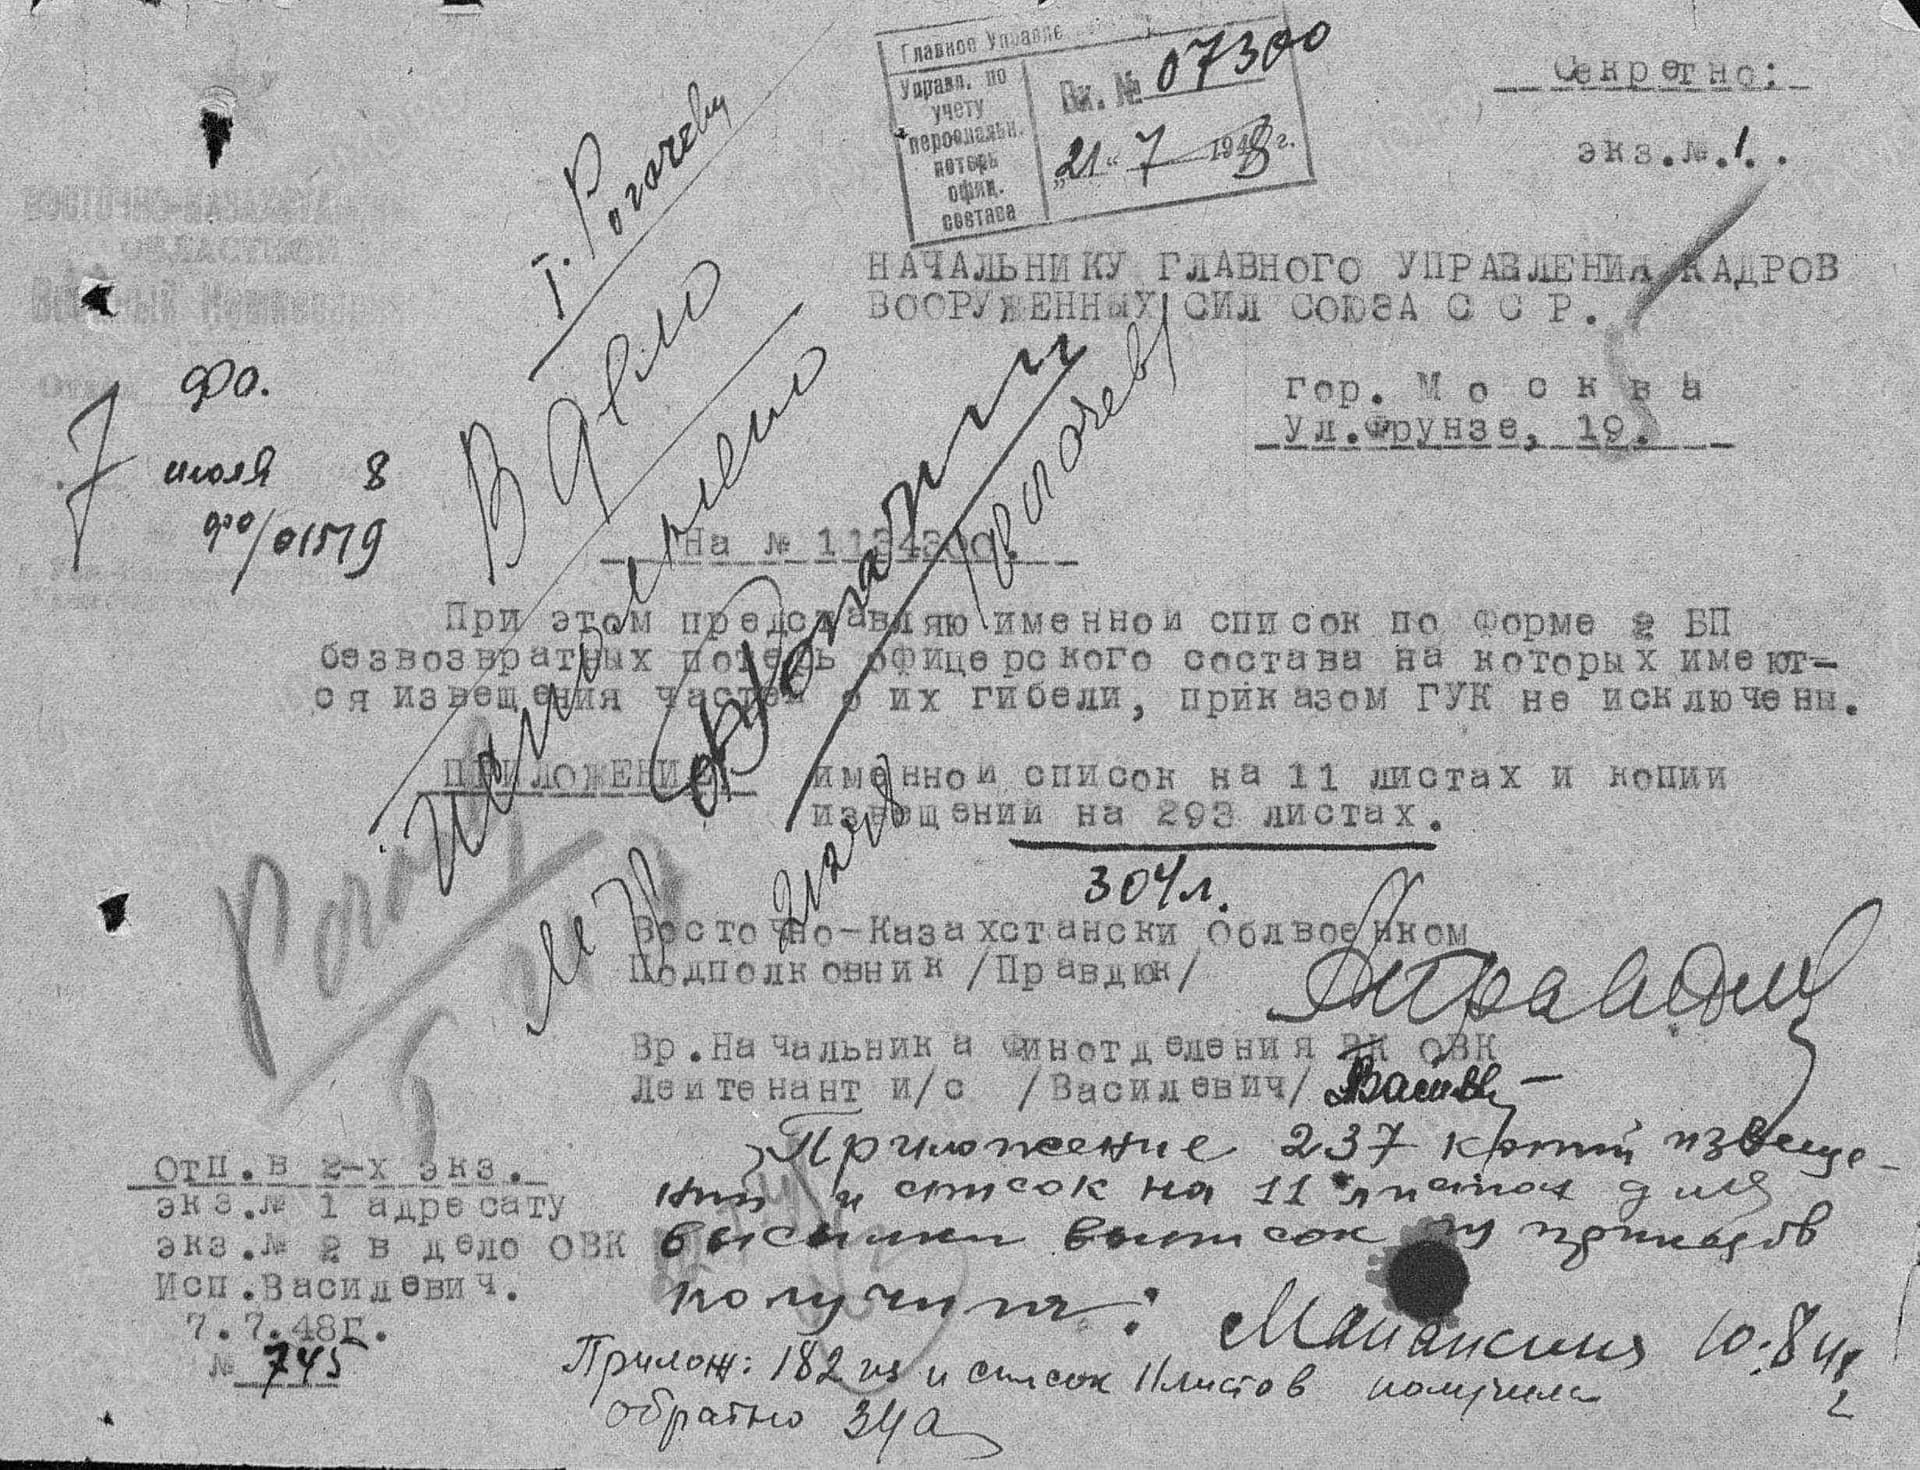 Секретно:
экз.№.1..
Главное Управле
Управл. по
учету
персональн.
потерь
офиц.
состава
Вх. № 07300
„21“ 7 1948 г.
т. Рогачеву
ВОСТОЧНО-КАЗАХСТАН
ОБЛАСТНОЙ
Военный Комиссариат
НАЧАЛЬНИКУ ГЛАВНОГО УПРАВЛЕНИЯ КАДРОВ
ВООРУЖЕННЫХ СИЛ СОЮЗА С С Р.
гор. М о с к в а
Ул.Фрунзе, 19.
фо.
7 июля 8
фо/01579
В дело
исполнено
На № 1134300.
При этом представляю именной список по Форме 2 БП
безвозвратных потерь офицерского состава на которых имеют-
ся извещения частей о их гибели, приказом ГУК не исключены.
ПРИЛОЖЕНИЕ: именной список на 11 листах и копии
извещений на 293 листах.
304л.
Восточно-Казахстански Облвоенком
Подполковник /Правдюк/
Вр.Начальника Финотделения ВК ОВК
Лейтенант и/с /Василевич/
Приложение 237 копий извеще-
ний и список на 11 листах для
высылки выписок из приказов
получила: 10.8.48
Отп.в 2-х экз.
экз.№ 1 адресату
экз.№ 2 в дело ОВК
Исп.Василевич.
7.7.48г.
№ 745
Прилож: 182 из и список 11 листов получила
обратно